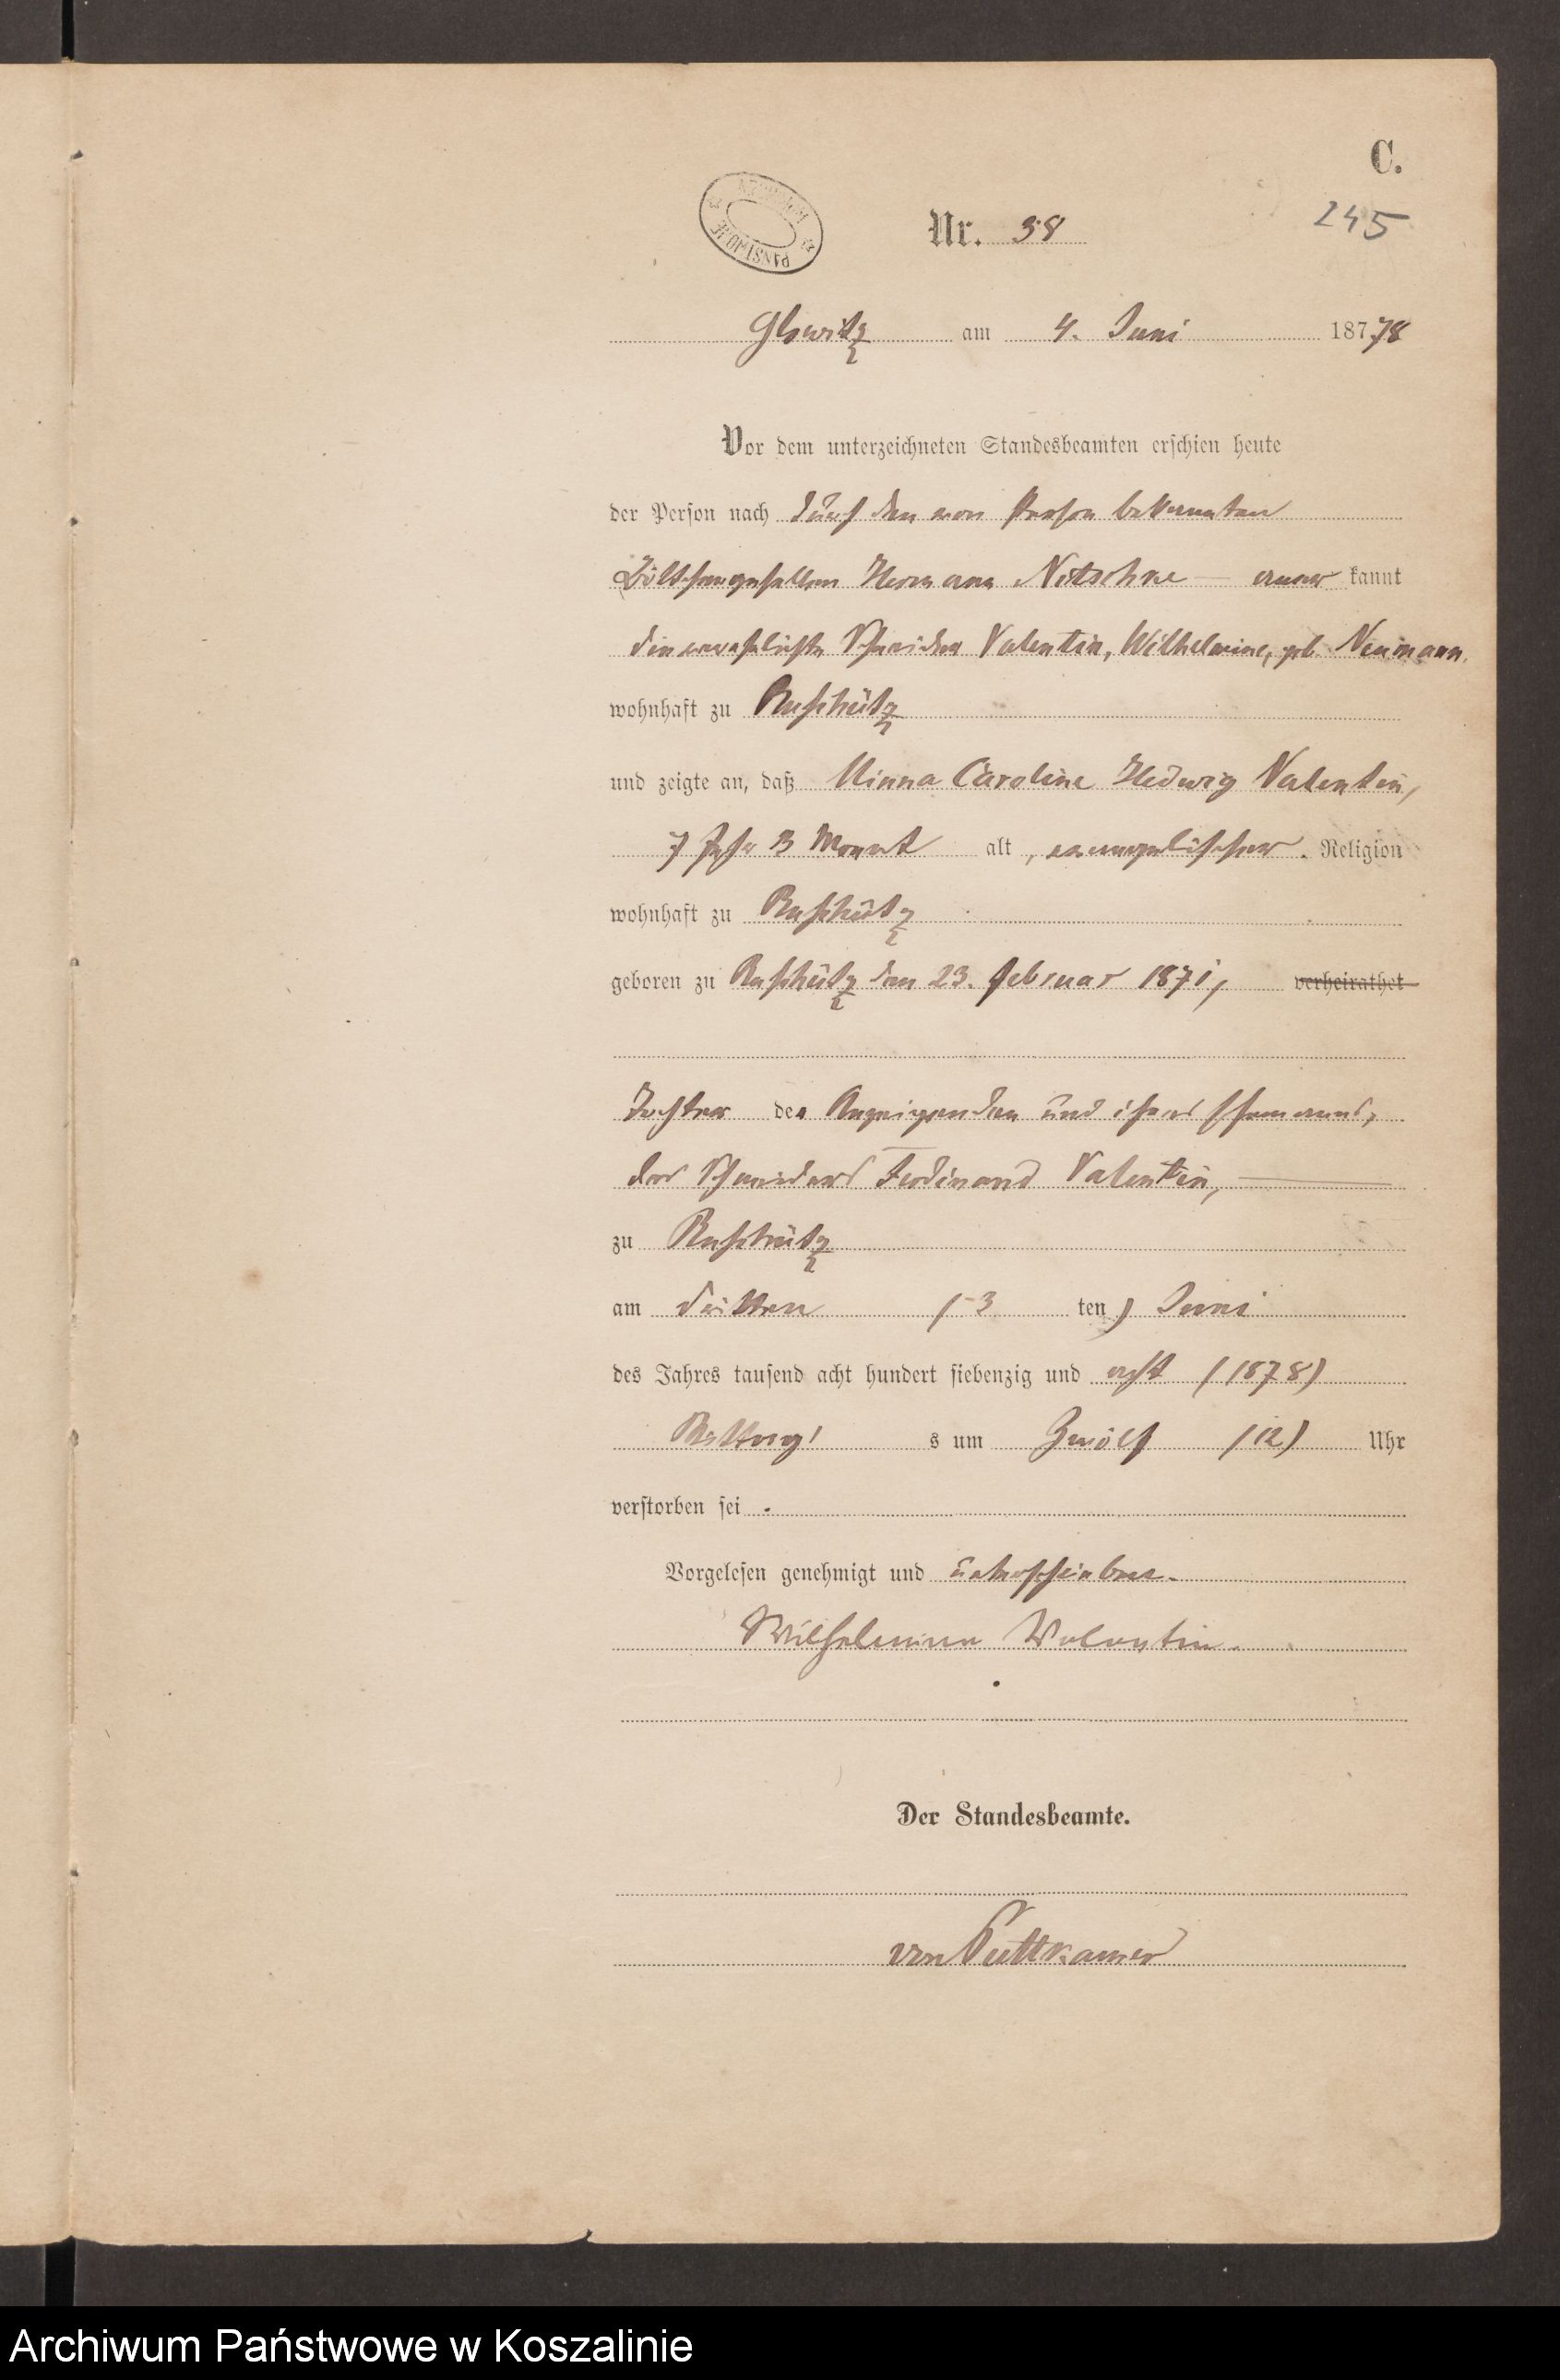 C.
Nr. 38
245
ARCHIWUM PAŃSTWOWE
Glowitz am 4. Juni 187 78
Vor dem unterzeichneten Standesbeamten erschien heute
der Person nach durch den von Person bekannten
Hermann Nitschke — aner kannt
die verehelichte Schneider Valentin, Wilhelmine, geb. Neumann,
wohnhaft zu Ruschütz
und zeigte an, daß Minna Caroline Hedwig Valentin,
7 Jahr 3 Monat alt, evangelischer Religion
wohnhaft zu Ruschütz
geboren zu Ruschütz den 23. Februar 1871, verheirathet
Tochter der Anzeigenden und ihres Ehemanns,
des Schneiders Ferdinand Valentin, —
zu Ruschütz
am dritten (3 ten) Juni
des Jahres tausend acht hundert siebenzig und acht (1878)
s um Zwölf (12) Uhr
verstorben sei.
Vorgelesen genehmigt und unterschrieben.
Wilhelmine Valentin.
Der Standesbeamte.
von Puttkamer
Archiwum Państwowe w Koszalinie